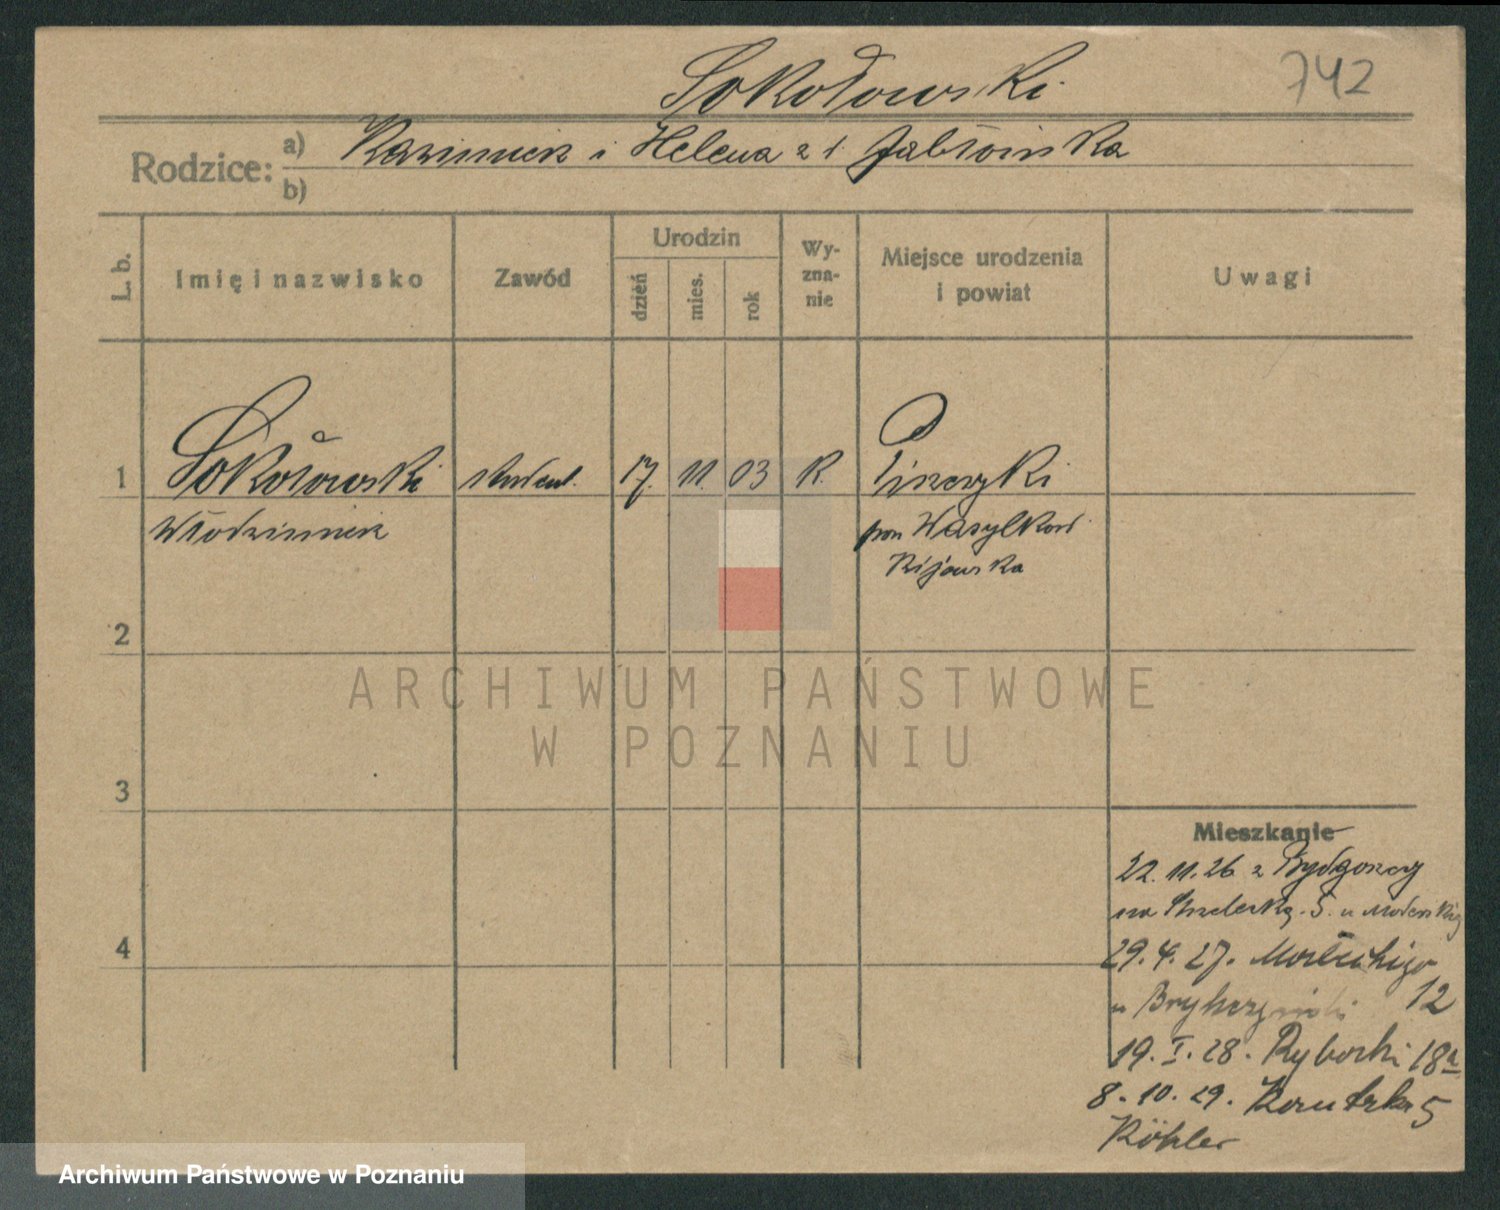 Sokołowski
742
Rodzice:
a) Kazimierz i Helena z d. Jabłońska
b)
L. b.
Imię i nazwisko
Zawód
Urodzin
dzień
mies.
rok
Wy-
zna-
nie
Miejsce urodzenia
i powiat
Uwagi
1 Sokołowski student. 17. 11. 03 R.
Włodzimierz
pow Wasylków
Kijowska
2
ARCHIWUM PAŃSTWOWE
W POZNANIU
3
Mieszkanie
22.11.26 z Bydgoszczy
na Strzelecką 5. u
4
29.4.27.
u 12
19.I.28. Rybaki 18a
8.10.29. 5
Köhler
Archiwum Państwowe w Poznaniu